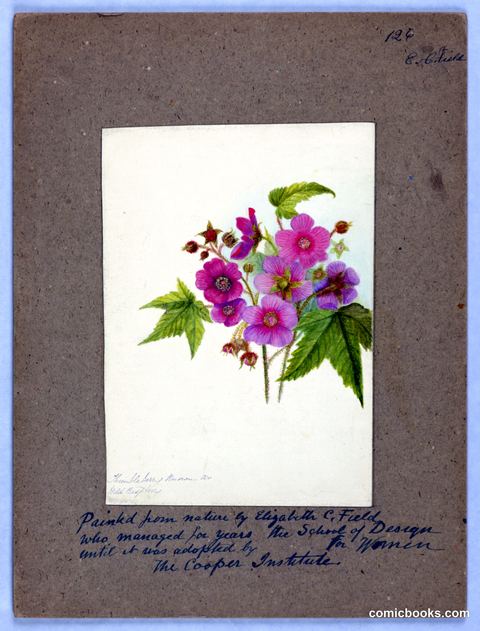 126
E. C. Field
Thimbleberry known as
Wild Raspberry
Painted from nature by Elizabeth C. Field
who managed for years the School of Design
until it was adopted by for Women
The Cooper Institute.
comicbooks.com